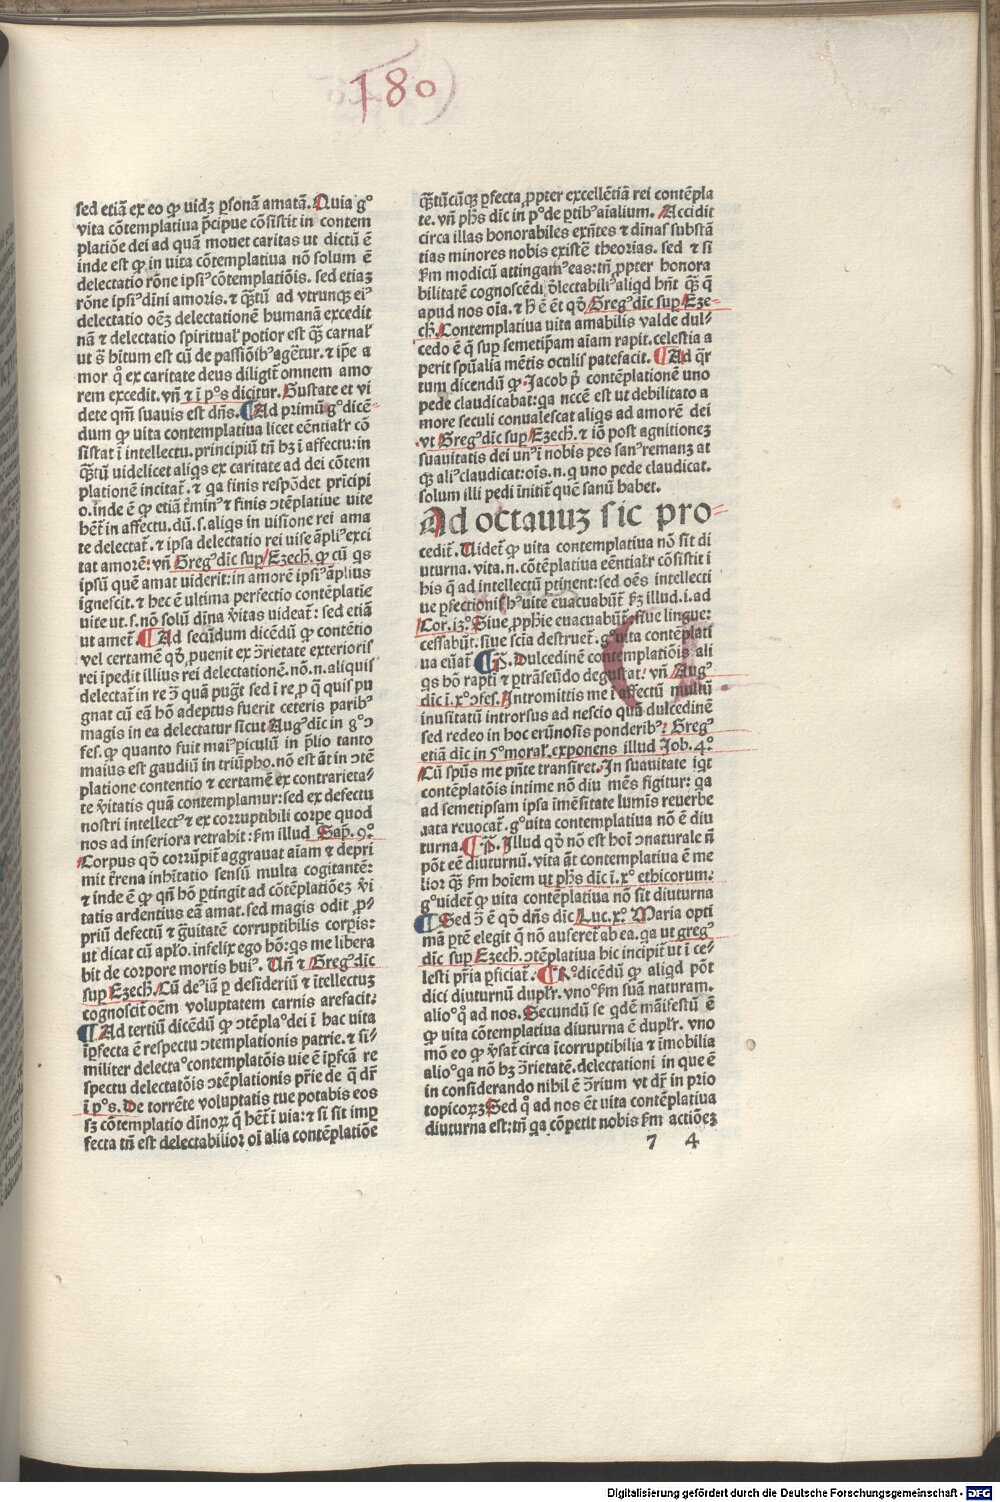 180
sed etiã ex eo ꝙ uidꝫ ꝑsonã amatã. Quia g°
vita cõtemplatiua p̃cipue cõsistit in contem
platiõe dei ad quã mouet caritas ut dictũ ẽ
inde est ꝙ in uita cõtemplatiua nõ solum ẽ
delectatio rõne ipsiꝰ cõtemplatiõis. sed etiaꝫ
rõne ipsiꝰ diĩni amoris. ⁊ q̃ꝫtũ ad vtrunqꝫ eiꝰ
delectatio oẽꝫ delectationẽ humanã excedit
nã ⁊ delectatio spiritual̃ potior est q̃ꝫ carnal̃
ut s̃ hitum est cũ de passiõibꝰ agẽtur. ⁊ ip̃e a
mor q̊ ex caritate deus diligit̃ omnem amo
rem excedit. vñ ⁊ ĩ p°s dicitur. Gustate et vi
dete qm̃ suauis est dñs. Ad primũ g° dicẽ-
dum ꝙ uita contemplatiua licet eẽntial̃r cõ
sistat ĩ intellectu. principiũ tñ hꝫ ĩ affectu: in
q̃ꝫtũ uidelicet aliqs ex caritate ad dei cõtem
plationẽ incitat̃. ⁊ qa finis respõdet prĩcipi
o. inde ẽ ꝙ etiã t̃minꝰ ⁊ finis ↄtẽplatiue uite
hẽt̃ in affectu. dũ. s. aliqs in uisione rei ama
te delectat̃. ⁊ ipsa delectatio rei uise ãpliꝰ exci
tat amorẽ: vñ Gregꝰ dic̃ sup Ezech̃. ꝙ cũ qs
ipsũ quẽ amat uiderit: in amorẽ ipsiꝰ ãplius
ignescit. ⁊ hec ẽ ultima perfectio contẽplatie
uite ut. s. nõ solũ diĩna ṽitas uideat̃: sed etiã
ut amet̃. Ad secũdum dicẽdũ ꝙ contẽtio
vel certamẽ qõ ꝓuenit ex ↄ̃rietate exterioris
rei ĩpedit illius rei delectationẽ. nõ. n. aliquis
delectat̃ in re ↄ̃ quã pugt̃ sed ĩ re ꝓ q̃ quis pu
gnat cũ eã hõ adeptus fuerit ceteris paribꝰ
magis in ea delectatur sicut Augꝰ dic̃ in 8° ↄ
fes. ꝙ quanto fuit maiꝰ ꝑiculũ in p̃lio tanto
maius est gaudiũ in triũpho. nõ est ãt in ↄtẽ
platione contentio ⁊ certamẽ ex contrarieta-
te ṽitatis quã contemplamur: sed ex defectu
nostri intellectꝰ ⁊ ex corruptibili corpe quod
nos ad inferiora retrahit: ẜm illud Sap̃. 9°.
Corpus qõ corrũpit̃ aggrauat aĩam ⁊ depri
mit t̃rena inhĩtatio sensũ multa cogitantẽ:
⁊ inde ẽ ꝙ qñ hõ ꝑtingit ad cõtẽplatiõeꝫ ṽi
tatis ardentius eã amat. sed magis odit ꝓ-
priũ defectũ ⁊ g̃uitatẽ corruptibilis corpis:
ut dicat cũ apl̃o. infelix ego hõ: qs me libera
bit de corpore mortis huiꝰ. Vñ ⁊ Gregꝰ dic̃
sup Ezech̃. Cũ deꝰ iã ꝑ desideriũ ⁊ ĩtellectuꝫ
cognoscit̃ oẽm voluptatem carnis arefacit:
Ad tertiũ dicẽdũ ꝙ ↄtẽpla° dei ĩ hac uita
ĩꝑfecta ẽ respectu ↄtemplationis patrie. ⁊ si-
militer delecta° contemplatõis uie ẽ ĩꝑfcã re
spectu delectatõis ↄtẽplationis pr̃ie de q̃ dr̃
ĩ p°s. De torrẽte voluptatis tue potabis eos
sꝫ cõtemplatio diĩnoꝝ q̃ hẽt̃ ĩ uia: ⁊ si sit imꝑ
fecta tñ est delectabilior oĩ alia contẽplatiõe
q̃ꝫtũcũqꝫ ꝑfecta ꝓpter excellẽtiã rei contẽpla
te. vñ ph̃s dic̃ in p° de ꝑtibꝰ aĩalium. Accidit
circa illas honorabiles exñtes ⁊ diĩnas substã
tias minores nobis existẽ theorias. sed ⁊ si
ẜm modicũ attingamꝰ eas: tñ ꝓpter honora
bilitatẽ cognoscẽdi d̃lectabiliꝰ aliqd hñt q̃ꝫ q̃
apud nos oĩa. ⁊ h̃ ẽ ẽt qõ Gregꝰ dic̃ sup Eze-
ch̃. Contemplatiua uita amabilis valde dul-
cedo ẽ q̃ sup semetip̃am aĩam rapit. celestia a
perit spũalia mẽtis oculis patefacit. Ad q̃r
tum dicendũ ꝙ Jacob p̃ contẽplationẽ uno
pede claudicabat: qa nccẽ est ut debilitato a
more seculi conualescat aliqs ad amorẽ dei
vt Gregꝰ dic̃ sup Ezech̃. ⁊ iõ post agnitioneꝫ
suauitatis dei unꝰ ĩ nobis pes sanꝰ remanꝫ at
qꝫ aliꝰ claudicat: oĩs. n. q uno pede claudicat.
solum illi pedi ĩnitit̃ quẽ sanũ habet.
Ad octauuꝫ sic pro-
cedit̃. Videt̃ ꝙ uita contemplatiua nõ sit di
uturna. vita. n. cõtẽplatiua eẽntial̃r cõsistit ĩ
his q̃ ad intellectũ ꝑtinent: sed oẽs intellecti
ue ꝑfectionis hꝰ uite euacuabũt̃ ẜm illud. i. ad
Cor. iꝫ. Siue ꝓph̃ie euacuabũt̃: siue lingue:
cessabũt̃. siue scĩa destruet̃. g° uita contẽplati
ua eũat̃ P̃. Dulcedinẽ contemplatiõis ali
qs hõ rapti ⁊ ꝑtrãseũdo degustat: vñ Augꝰ
dic̃ ĩ. x° ↄfes. Intromittis me ĩ affectũ multũ
inusitatũ introrsus ad nescio quã dulcedinẽ
sed redeo in hoc erũnosis ponderibꝰ: Gregꝰ
etiã dic̃ in 5° moral̃. exponens illud Job. 4°.
Cũ spũs me p̃ñte transiret. In suauitate igt̃
contẽplatõis intime nõ diu mẽs figitur: qa
ad semetipsam ipsa ĩmẽsitate lumĩs reuerbe
rata reuocat̃. g° uita contemplatiua nõ ẽ diu
turna. P̃. Illud qõ nõ est hoĩ ↄnaturale ñ
põt eẽ diuturnũ. vita ãt contemplatiua ẽ me
lior q̃ꝫ ẜm hoĩem ut ph̃s dic̃ ĩ. x° ethicorum:
g° uidet̃ ꝙ uita contẽplatiua nõ sit diuturna
Sed ↄ̃ ẽ qõ dñs dic̃ Luc. x°. Maria opti
mã ꝑtẽ elegit q̃ nõ auferet̃ ab ea. qa ut gregꝰ
dic̃ sup Ezech̃. ↄtẽplatiua hic incipit̃ ut ĩ ce-
lesti pr̃ia ꝑficiat̃. R° dicẽdũ ꝙ aliqd põt
dici diuturnũ dupl̃r. vno° ẜm suã naturam.
alio° q̊ ad nos. Secundũ se qdẽ mãifestũ ẽ
ꝙ uita cõtemplatiua diuturna ẽ dupl̃r. vno
mõ eo ꝙ ṽsat̃ circa ĩcorruptibilia ⁊ ĩmobilia
alio° qa nõ hꝫ ↄ̃rietatẽ. delectationi in que ẽ
in considerando nihil ẽ ↄ̃rium ut dr̃ in prio
topicoꝝꝫ Sed q̊ ad nos ẽt uita contẽplatiua
diuturna est: tñ qa cõpetit nobis ẜm actiõeꝫ
7 4
Digitalisierung gefördert durch die Deutsche Forschungsgemeinschaft - DFG